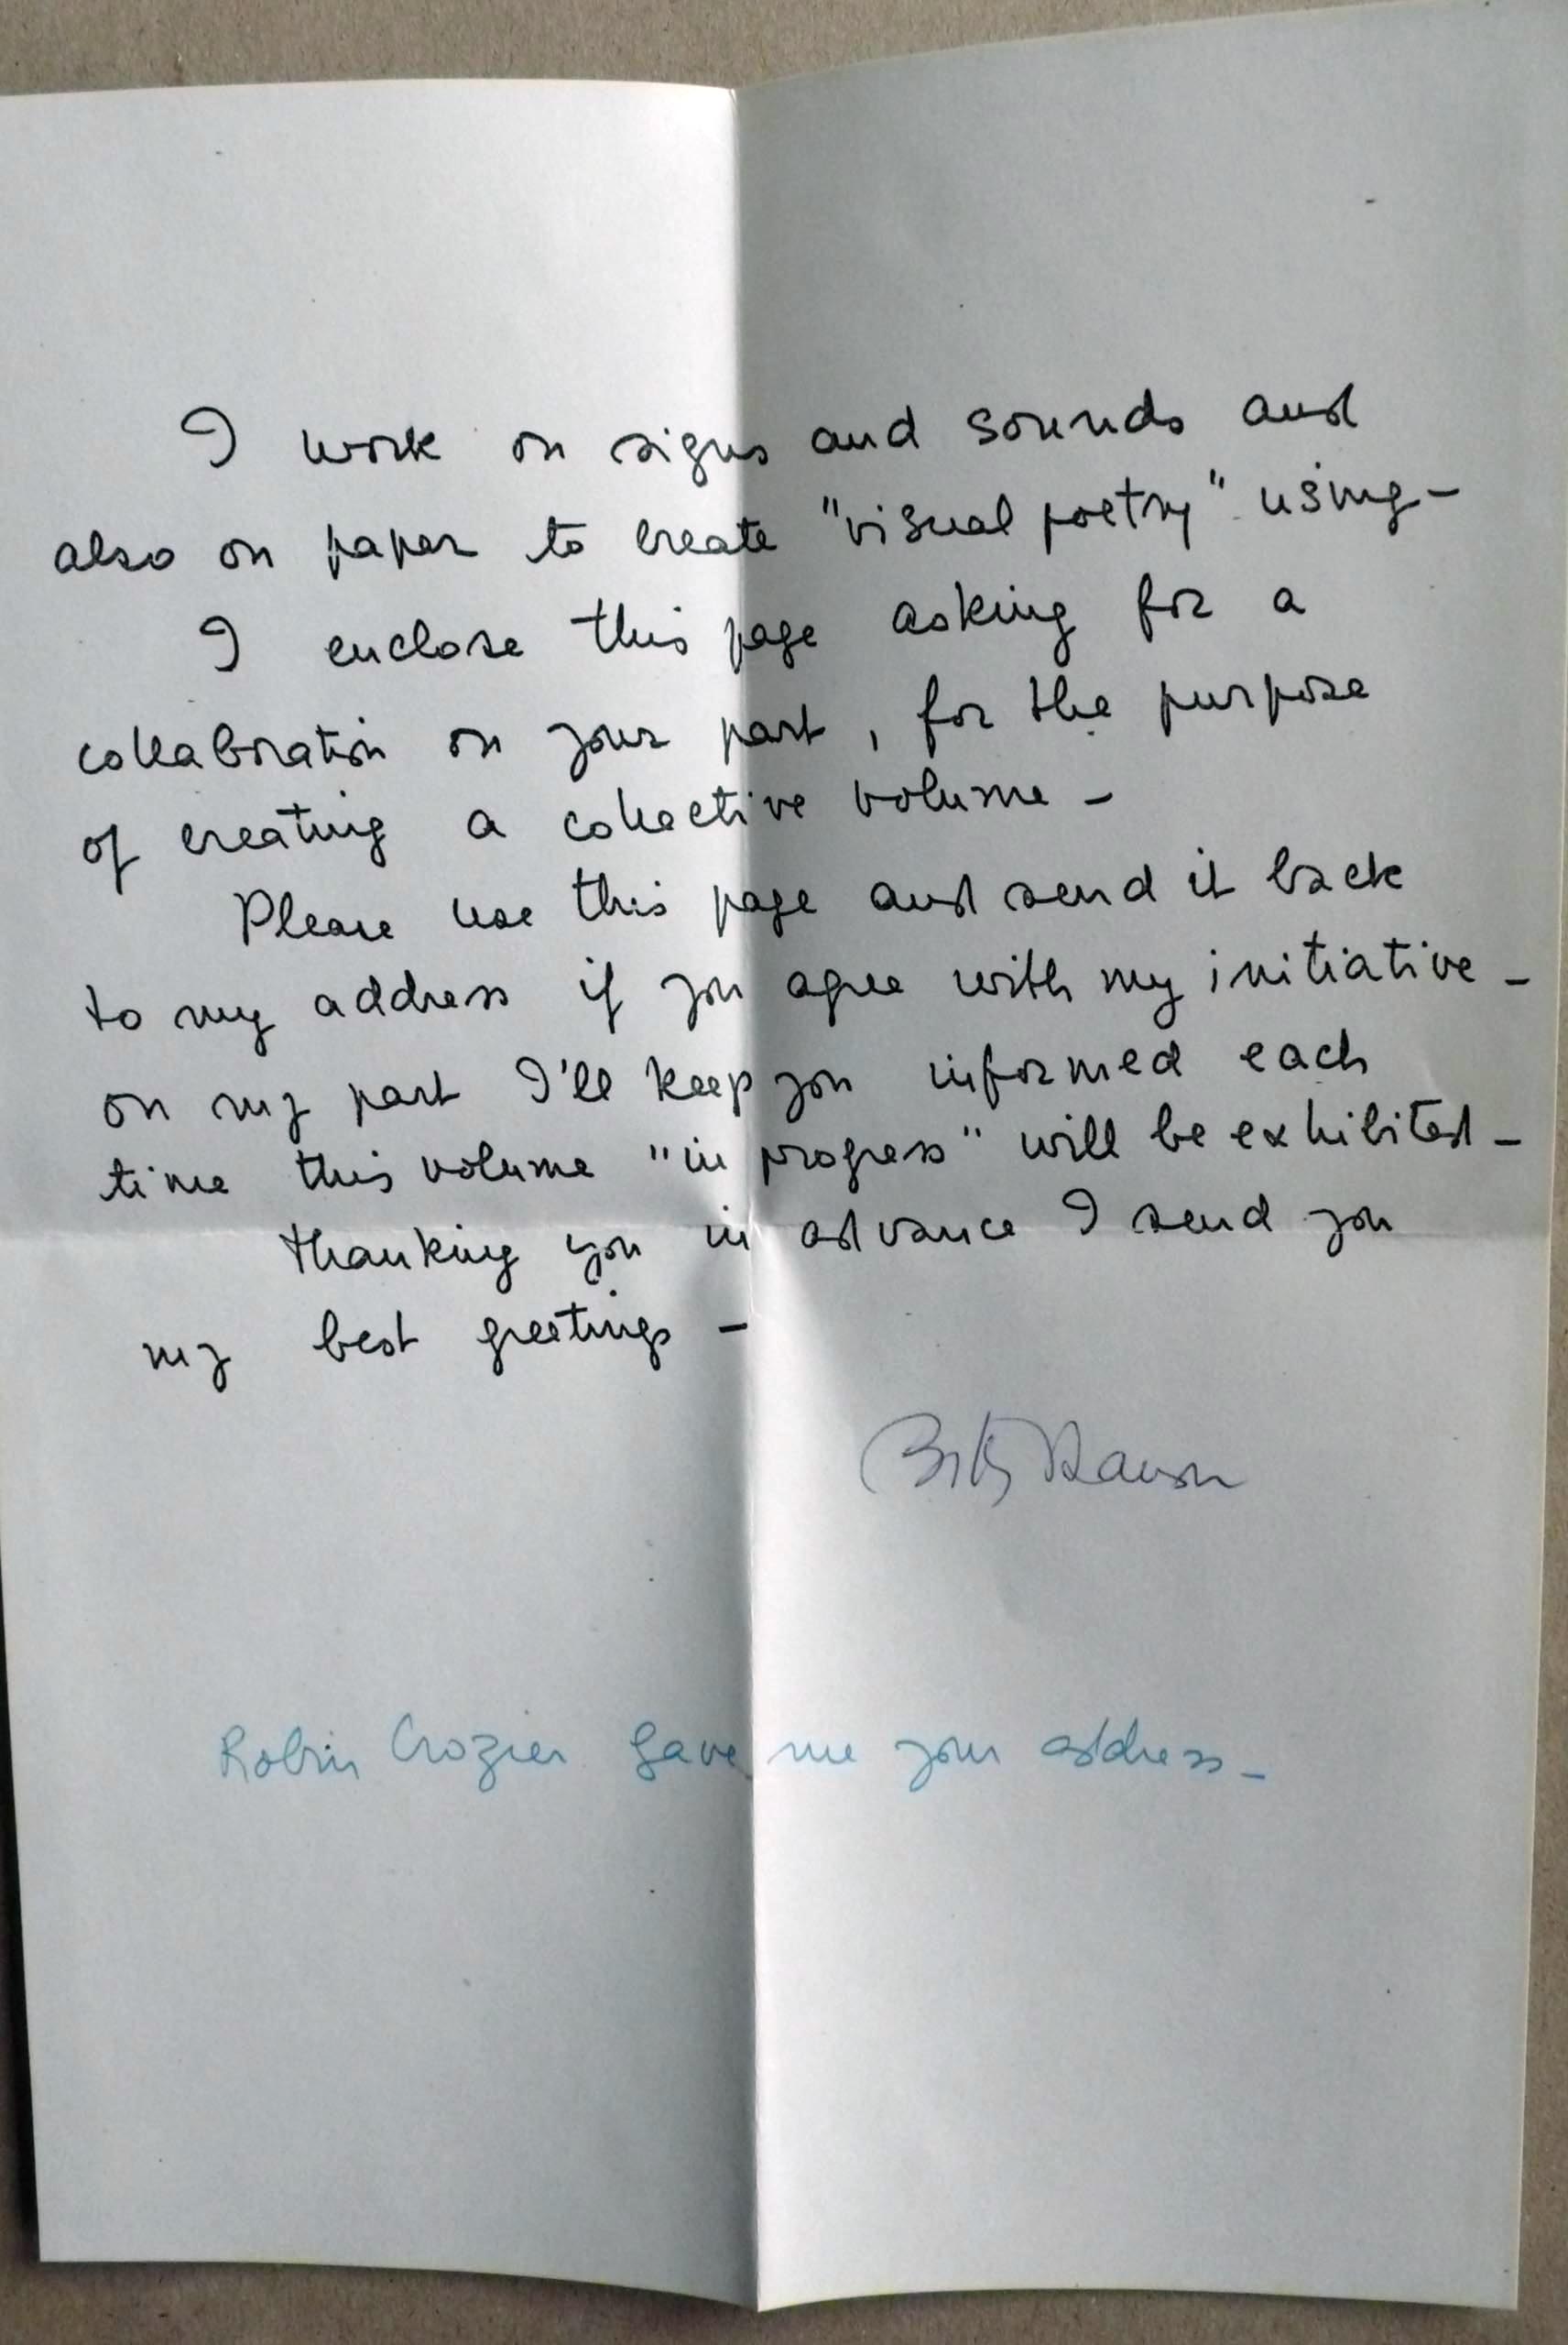 I work on signs and sounds and
also on paper to create "visual poetry" using –
I enclose this page asking for a
collaboration on your part, for the purpose
of creating a collective volume –
Please use this page and send it back
to my address if you agree with my initiative –
on my part I'll keep you informed each
time this volume "in progress" will be exhibited –
thanking you in advance I send you
my best greetings –
Betty Danon
Robin Crozier gave me your address –